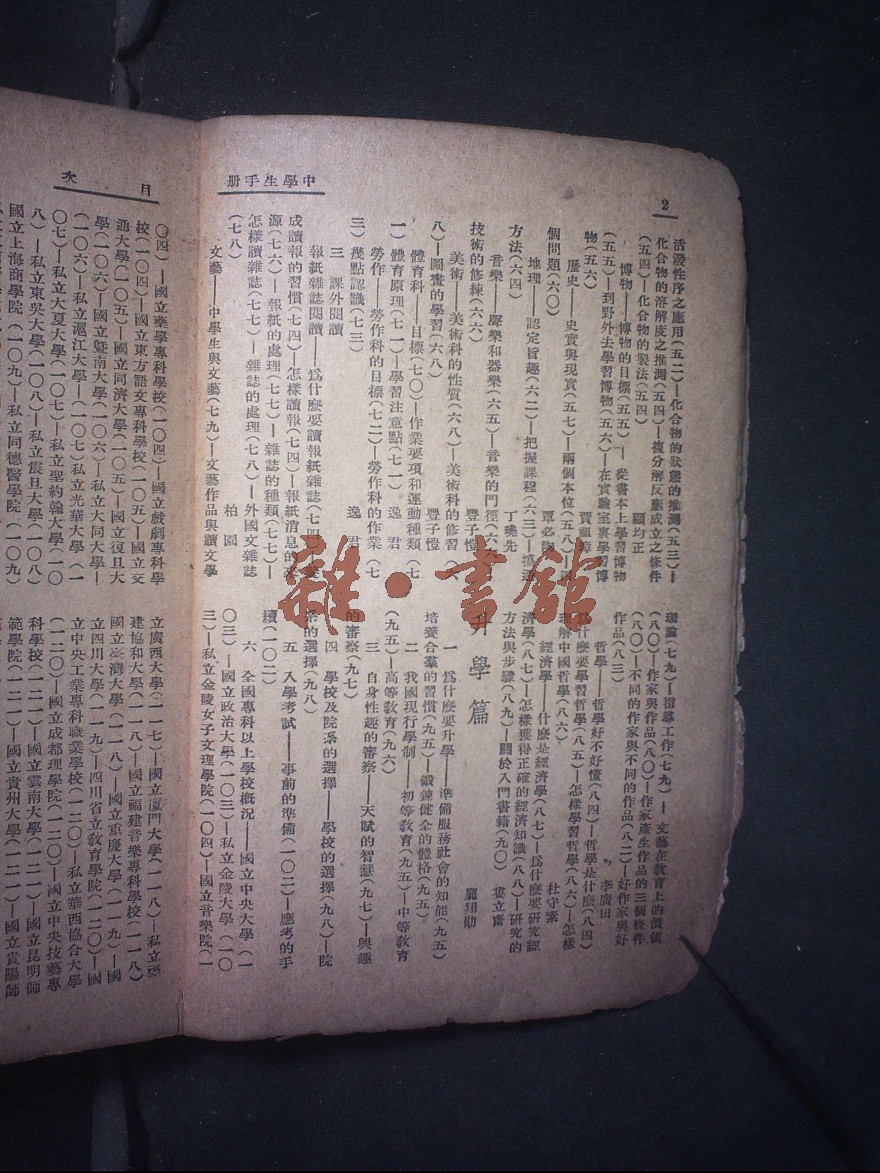 中學生手册
2
活潑性序之應用(五二)—化合物的狀態的推測(五三)—
化合物的溶解度之推測(五四)—複分解反應成立之條件
(五四)—化合物的製法(五四) 顧均正
博物——博物的目標(五五) 從書本上學習博物
(五五)—到野外去學習博物(五六)—在實驗室裏學習博
物(五六) 賈祖璋
歷史——史實與現實(五七)—兩個本位(五八)—
個問題(六〇) 覃必陶
地理——認定旨趣(六二)—把握課程(六三)—
方法(六四) 丁曉先
音樂——聲樂和器樂(六五)—音樂的門徑(六
技術的修練(六六) 豐子愷
美術——美術科的性質(六八)—美術科的修習(六
八)—圖畫的學習(六八) 豐子愷
體育科——目標(七〇)—作業要項和運動種類(七
一)體育原理(七一)—學習注意點(七一) 逸君
勞作——勞作科的目標(七二)—勞作科的作業(七
三)幾點認識(七三) 逸君
三 課外閱讀
報紙雜誌閱讀——爲什麽要讀報紙雜誌(七四)
成讀報的習慣(七四)怎樣讀報(七四)—報紙消息的來
源(七六)—報紙的處理(七七)—雜誌的種類(七七)—
怎樣讀雜誌(七七)—雜誌的處理(七八)—外國文雜誌
(七八) 柏園
文藝——中學生與文藝(七九)—文藝作品與讀文學
理論(七九)—習作工作(七九)—文藝在教育上的價值
(八〇)—作家與作品(八〇)—作家產生作品的三個條件
(八〇)—不同的作家與不同的作品(八二)—好作家與好
作品(八三) 李廣田
哲學——哲學好不好懂(八四)—哲學是什麽(八四)
爲什麽要學習哲學(八五)—怎樣學習哲學(八六)—怎樣
理解中國哲學(八六) 杜守素
經濟學——什麽是經濟學(八七)—爲什麽要研究經
濟學(八七)—怎樣獲得正確的經濟知識(八八)—研究的
方法與步驟(八九)—關於入門書籍(九〇) 婁立齋
升學篇
龐翔勛
一 爲什麽要升學——準備服務社會的知能(九五)
培養合羣的習慣(九五)—鍛鍊健全的體格(九五)
二 我國現行學制——初等教育(九五)—中等教育
(九五)—高等教育(九六)
三 自身性趣的審察——天賦的智慧(九七)—興趣
的審察(九七)
四 學校及院系的選擇——學校的選擇(九八)—院
系的選擇(九八)
五 入學考試——事前的準備(一〇二)—應考的手
續(一〇二)
六 全國專科以上學校概況——國立中央大學(一
〇三)—國立政治大學(一〇三)—私立金陵大學(一〇
三)—私立金陵女子文理學院(一〇四)—國立音樂院(一
目次
〇四)—國立藥學專科學校(一〇四)—國立戲劇專科學
校(一〇四)—國立東方語文專科學校(一〇五)—國立交
通大學(一〇五)—國立同濟大學(一〇五)—國立復旦大
學(一〇六)—國立暨南大學(一〇六)—私立大同大學—
(一〇六)—私立滬江大學—(一〇七)私立光華大學(一
〇七)—私立大夏大學(一〇七)—私立聖約翰大學(一〇
八)—私立東吳大學(一〇八)—私立震旦大學(一〇八)
國立上海商學院(一〇九)—私立同德醫學院(一〇九
立廣西大學(一一七)—國立廈門大學(一一八)—私立福
建協和大學(一一八)—國立福建音樂專科學校(一一八)
國立臺灣大學(一一八)—國立重慶大學(一一九)—國
立四川大學(一一九)—四川省立教育學院(一二〇)—國
立中央工業專科職業學校(一二〇)—私立華西協合大學
(一二〇)—國立成都理學院(一二〇)—國立中央技藝專
科學校(一二一)—國立雲南大學(一二一)—國立昆明師
範學院(一二一)—國立貴州大學(一二一)—國立貴陽師
雜·書館